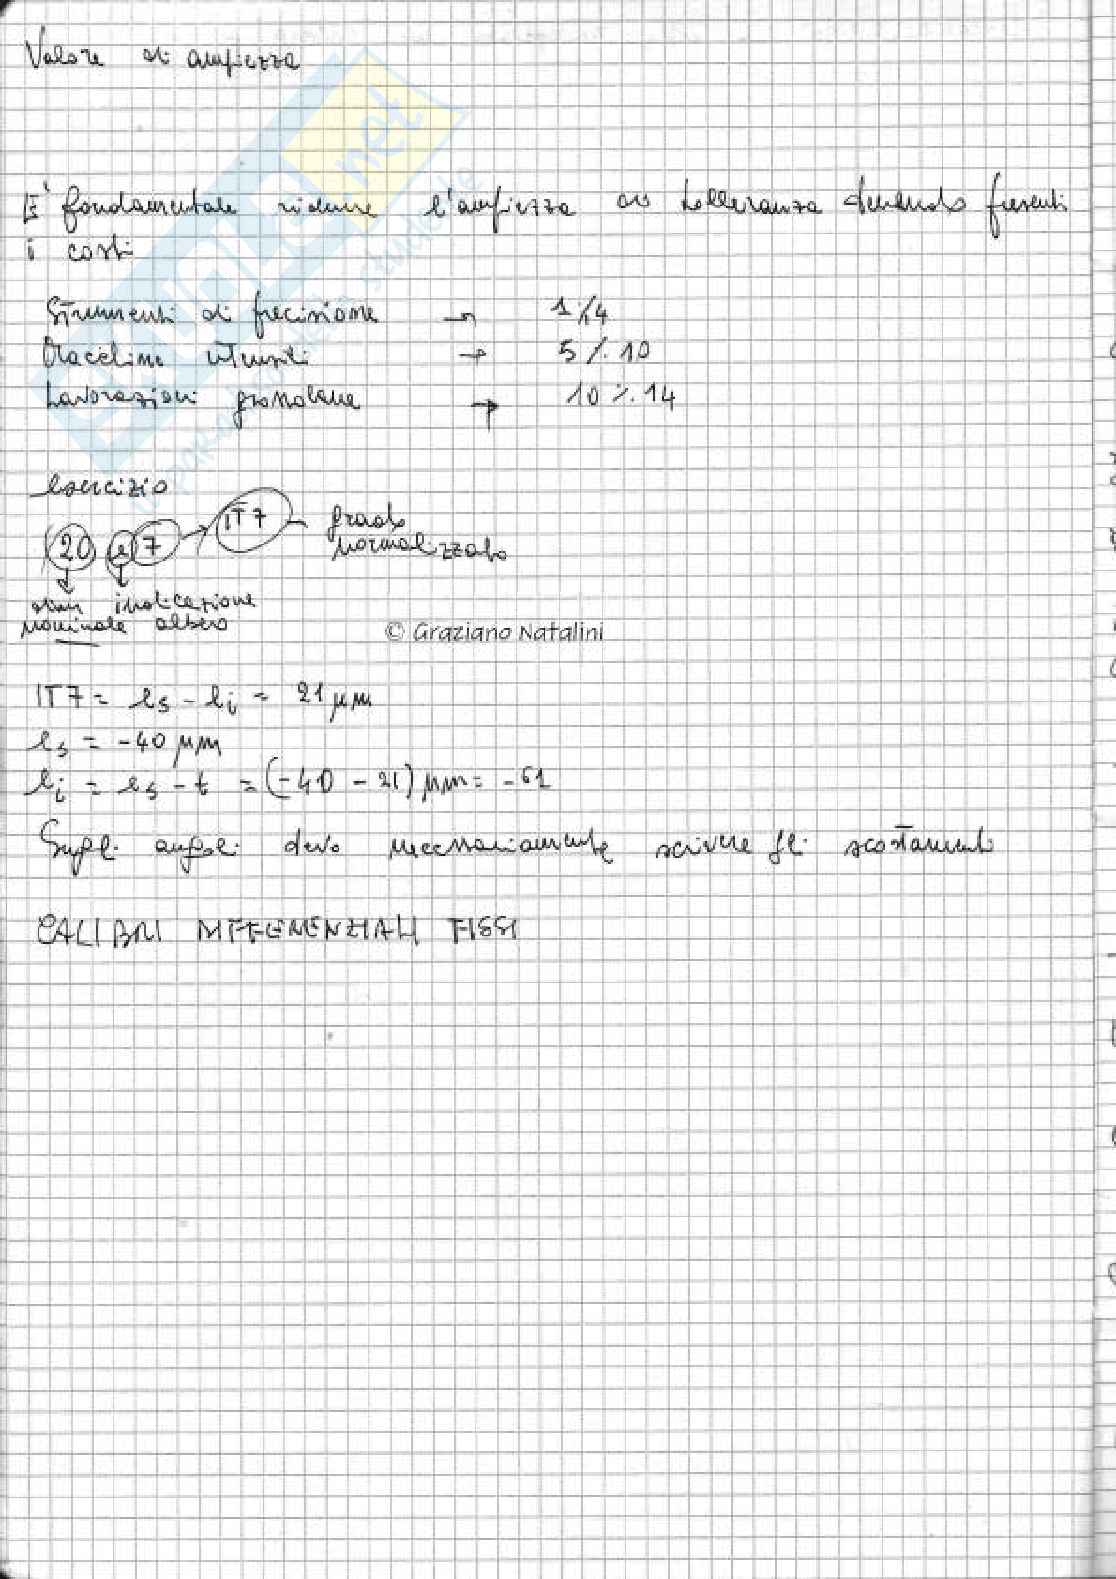 Valore di ampiezza
E' fondamentale ridurre l'ampiezza di tolleranza tenendo presenti
i costi
Strumenti di precisione → 1 ÷ 4
Macchine utensili → 5 ÷ 10
Lavorazioni grossolane → 10 ÷ 14
esercizio
20 e 7 → IT7 - grado
normalizzato
dim indicazione
nominale albero
© Graziano Natalini
IT7 = es - ei = 21 μm
es = -40 μm
ei = es - t = (-40 - 21) μm = -61
Sugli angoli devo necessariamente scrivere gli scostamenti
CALIBRI DIFFERENZIALI FISSI